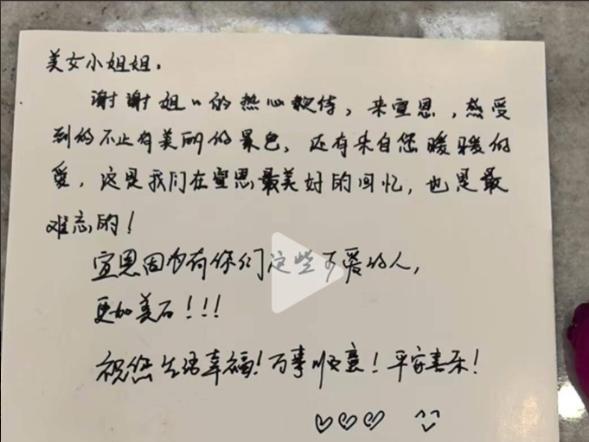 美女小姐姐。
谢谢姐〃的热心款待，来宣恩，感受
到的不止有美丽的景色，还有来自您暖暖的
爱，这是我们在宣恩最美好的回忆，也是最
难忘的！
宣恩因为有你们这些可爱的人，
更加美！！！
祝您生活幸福！万事顺意！平安喜乐！